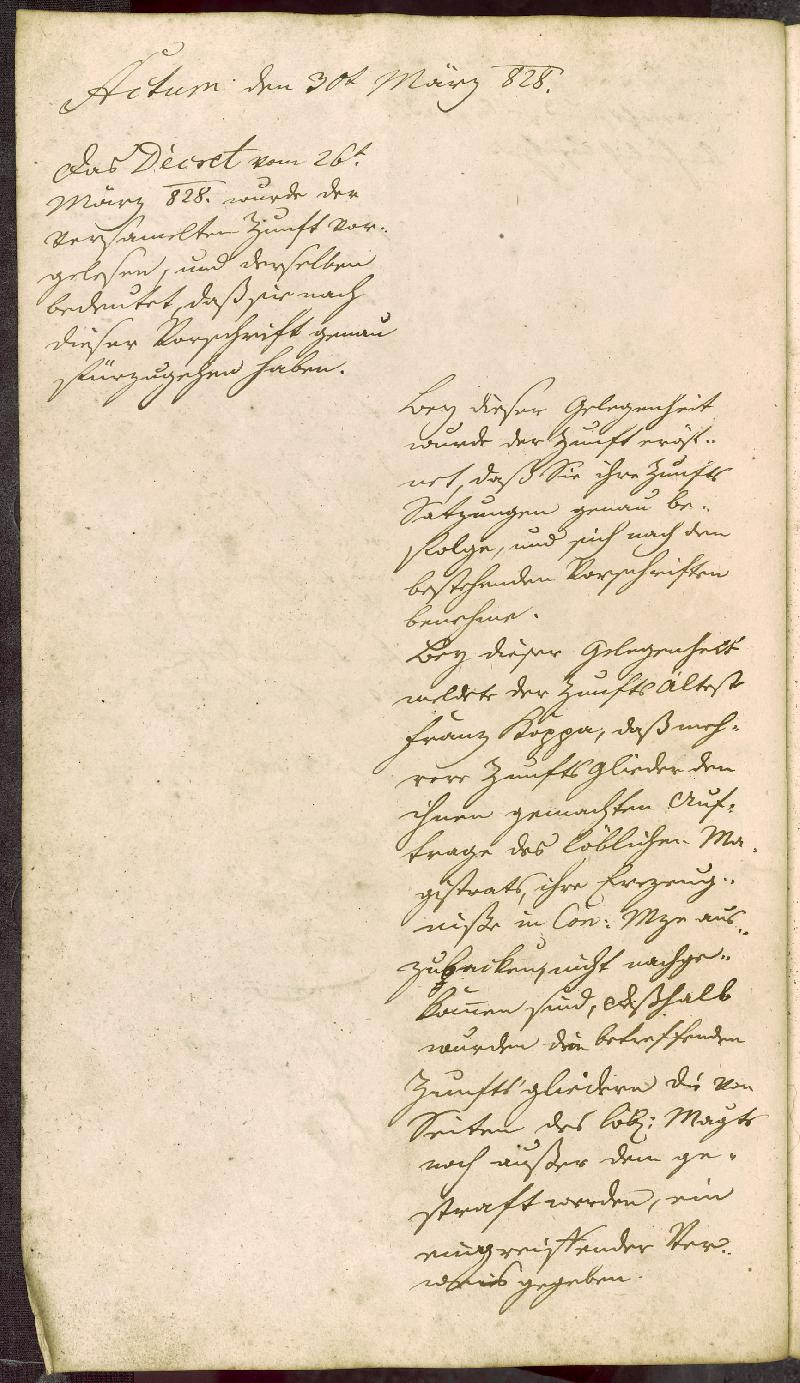 Actum den 30t März 828.
Das Decret vom 26t
März 828. wurde der
versamelten Zunft vor-
gelesen, und derselben
bedeutet, daß sie nach
dieser Vorschrift genau
fürzugehen haben.
Bey dieser Gelegenheit
wurde der Zunft eröf-
net, daß Sie ihre Zunfts
Satzungen genau be-
folge, und sich nach den
bestehenden Vorschriften
benehme.
Bey dieser Gelegenheit
meldete der Zunfts Älteste
Franz Koppa, daß meh-
rere Zunfts Glieder den
ihnen gemachten Auf-
trage des löblichen Ma-
gistrats, ihre Erzeug-
niße in Con: Mze aus-
zubacken, nicht nachge-
kommen sind, deßhalb
wurden den betreffenden
Zunfts gliedern die von
Seiten des löbl: Magts
noch außer dem ge-
straft werden, ein
eingreiffender Ver-
weis gegeben.